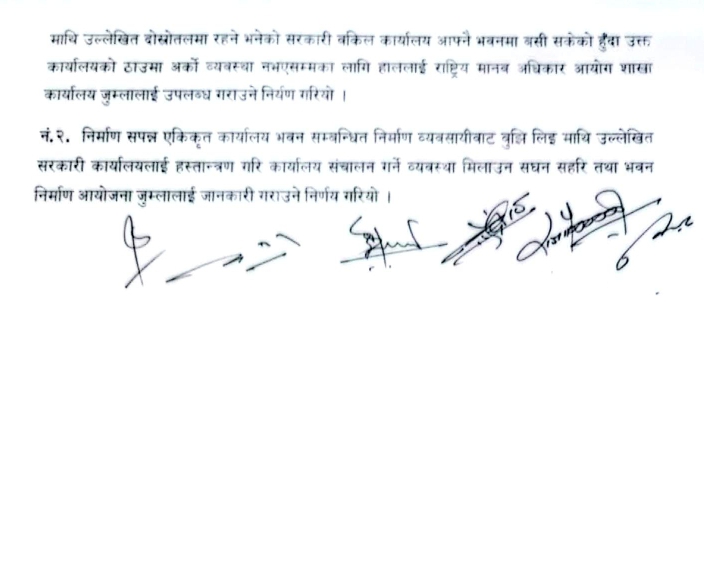 माथि उल्लेखित दोस्रोतलमा रहने भनेको सरकारी वकिल कार्यालय आफ्नै भवनमा बसी सकेको हुँदा उक्त
कार्यालयको ठाउमा अर्को व्यवस्था नभएसम्मका लागि हाललाई राष्ट्रिय मानब अधिकार आयोग शाखा
कार्यालय जुम्लालाई उपलब्ध गराउने निर्यण गरियो ।
नं.२. निर्माण सपन्न एकिकृत कार्यालय भवन सम्बन्धित निर्माण व्यबसायीबाट बुझि लिइ माथि उल्लेखित
सरकारी कार्यालयलाई हस्तान्त्रण गरि कार्यालय संचालन गर्ने व्यवस्था मिलाउन सघन सहरि तथा भवन
निर्माण आयोजना जुम्लालाई जानकारी गराउने निर्णय गरियो ।